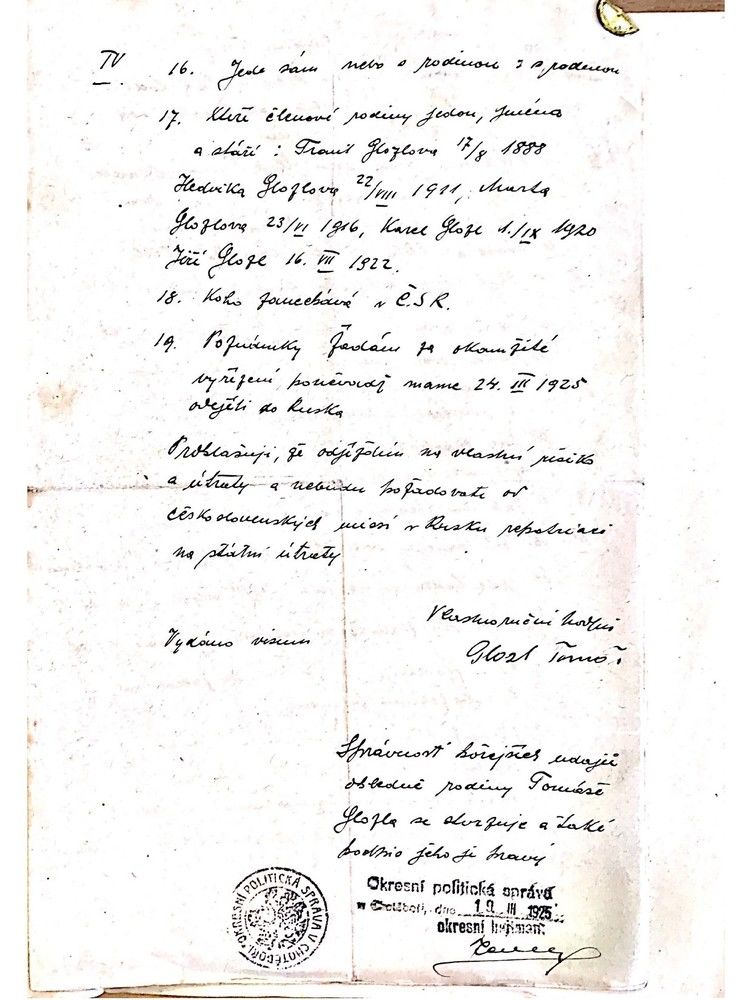 IV
16. Jede sám nebo s rodinou? s rodinou
17. Kteří členové rodiny jedou, jména
a stáří: Glozlova 17/8 1888
Hedvika Glozlova 22/VIII 1911, Marta
Glozlova 23/VI 1916, Karel Glozl 1./IX 1920
Jiří Glozl 16. VII 1922.
18. Koho zanechává v Č.S.R.
19. Poznámky Žádám za okamžité
vyřízení, poněvadž mame 24. III 1925
odejeti do Ruska
Prohlašuji, že odjíždím na vlastní risiko
a útraty a nebudu požadovati od
československých misí v Rusku repatriaci
na státní útraty
Vlastnoruční podpis
Vydáno visum
Glozl Tomáš
Správnost hořejších udajů
ohledně rodiny Tomáše
Glozla se stvrzuje a také
podpis jeho je pravý
Okresní politická správa
v Chotěboři, dne 19. III. 1925
okresní hejtman:
OKRESNÍ POLITICKÁ SPRÁVA V CHOTĚBOŘI